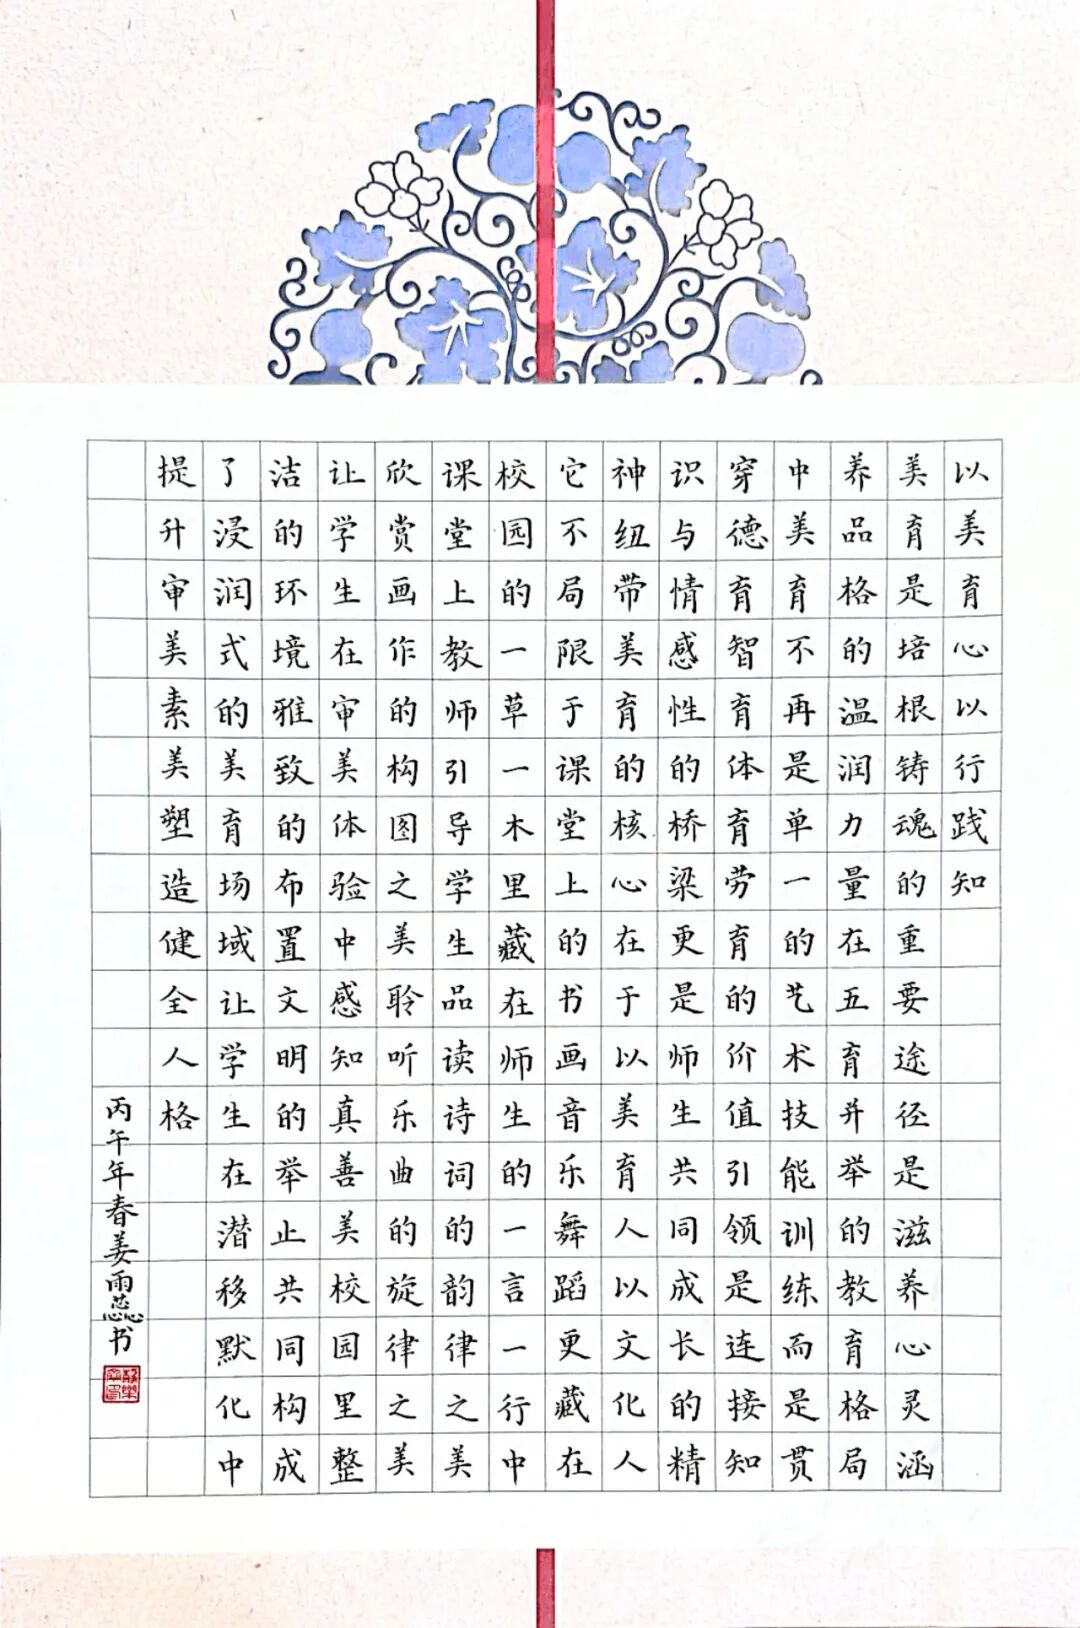 以美育心以行践知
美育是培根铸魂的重要途径是滋养心灵涵
养品格的温润力量在五育并举的教育格局
中美育不再是单一的艺术技能训练而是贯
穿德育智育体育劳育的价值引领是连接知
识与情感性的桥梁更是师生共同成长的精
神纽带美育的核心在于以美育人以文化人
它不局限于课堂上的书画音乐舞蹈更藏在
校园的一草一木里藏在师生的一言一行中
课堂上教师引导学生品读诗词的韵律之美
欣赏画作的构图之美聆听乐曲的旋律之美
让学生在审美体验中感知真善美校园里整
洁的环境雅致的布置文明的举止共同构成
了浸润式的美育场域让学生在潜移默化中
提升审美素美塑造健全人格
丙午年春姜雨蕊书